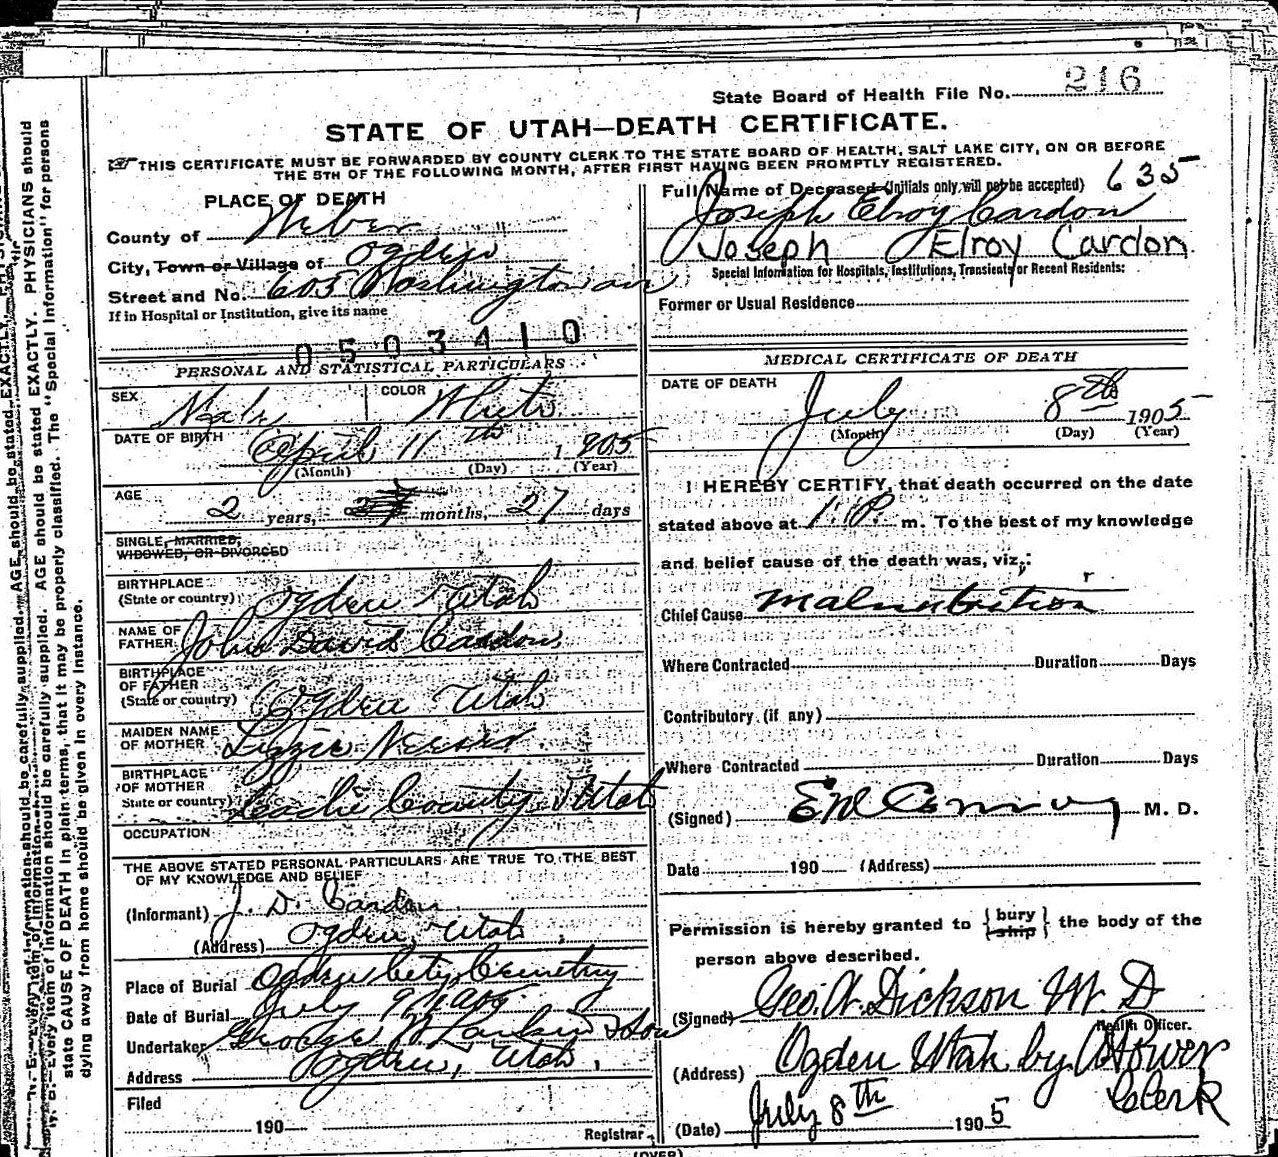 State Board of Health File No. 216
STATE OF UTAH—DEATH CERTIFICATE.
THIS CERTIFICATE MUST BE FORWARDED BY COUNTY CLERK TO THE STATE BOARD OF HEALTH, SALT LAKE CITY, ON OR BEFORE
THE 5TH OF THE FOLLOWING MONTH, AFTER FIRST HAVING BEEN PROMPTLY REGISTERED.
PLACE OF DEATH
County of Weber
City, Town or Village of Ogden
Street and No. 603 Washington av
If in Hospital or Institution, give its name
0503410
Full Name of Deceased (Initials only will not be accepted) 635
Joseph Elroy Cardon
Joseph Elroy Cardon
Special Information for Hospitals, Institutions, Transients or Recent Residents:
Former or Usual Residence
PERSONAL AND STATISTICAL PARTICULARS
SEX Male COLOR White
DATE OF BIRTH April 11th 1905
(Month) (Day) (Year)
AGE
2 years, months, 27 days
SINGLE, MARRIED,
WIDOWED, OR DIVORCED
BIRTHPLACE
(State or country) Ogden Utah
NAME OF
FATHER John David Cardon
BIRTHPLACE
OF FATHER
(State or country) Ogden Utah
MAIDEN NAME
OF MOTHER Lizzie
BIRTHPLACE
OF MOTHER
State or country) County Utah
OCCUPATION
THE ABOVE STATED PERSONAL PARTICULARS ARE TRUE TO THE BEST
OF MY KNOWLEDGE AND BELIEF
(Informant) J. D. Cardon
(Address) Ogden, Utah
Place of Burial Ogden City Cemetry
Date of Burial July 9th
Undertaker George W Larkin & Son
Address Ogden, Utah,
Filed
190
Registrar
MEDICAL CERTIFICATE OF DEATH
DATE OF DEATH
July 8th 1905
(Month) (Day) (Year)
I HEREBY CERTIFY, that death occurred on the date
stated above at 1 P. m. To the best of my knowledge
and belief cause of the death was, viz,:
Chief Cause Malnutrition
Where Contracted Duration Days
Contributory (if any)
Where Contracted Duration Days
(Signed) M. D.
Date 190 (Address)
Permission is hereby granted to {bury ship} the body of the
person above described.
(Signed) Geo. W. Dickson M. D
Health Officer.
(Address) Ogden Utah by
Clerk
(Date) July 8th 1905
(OVER)
state CAUSE OF DEATH in plain terms, that it may be properly classified. The "Special Information" for persons
dying away from home should be given in every instance.
Every item of information should be carefully supplied. AGE should be stated EXACTLY. PHYSICIANS should